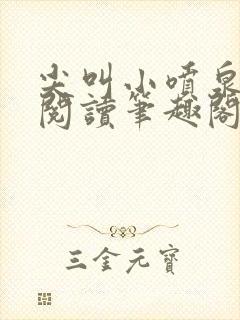 尖叫小噴泉
閱讀筆趣閣
三金元寶